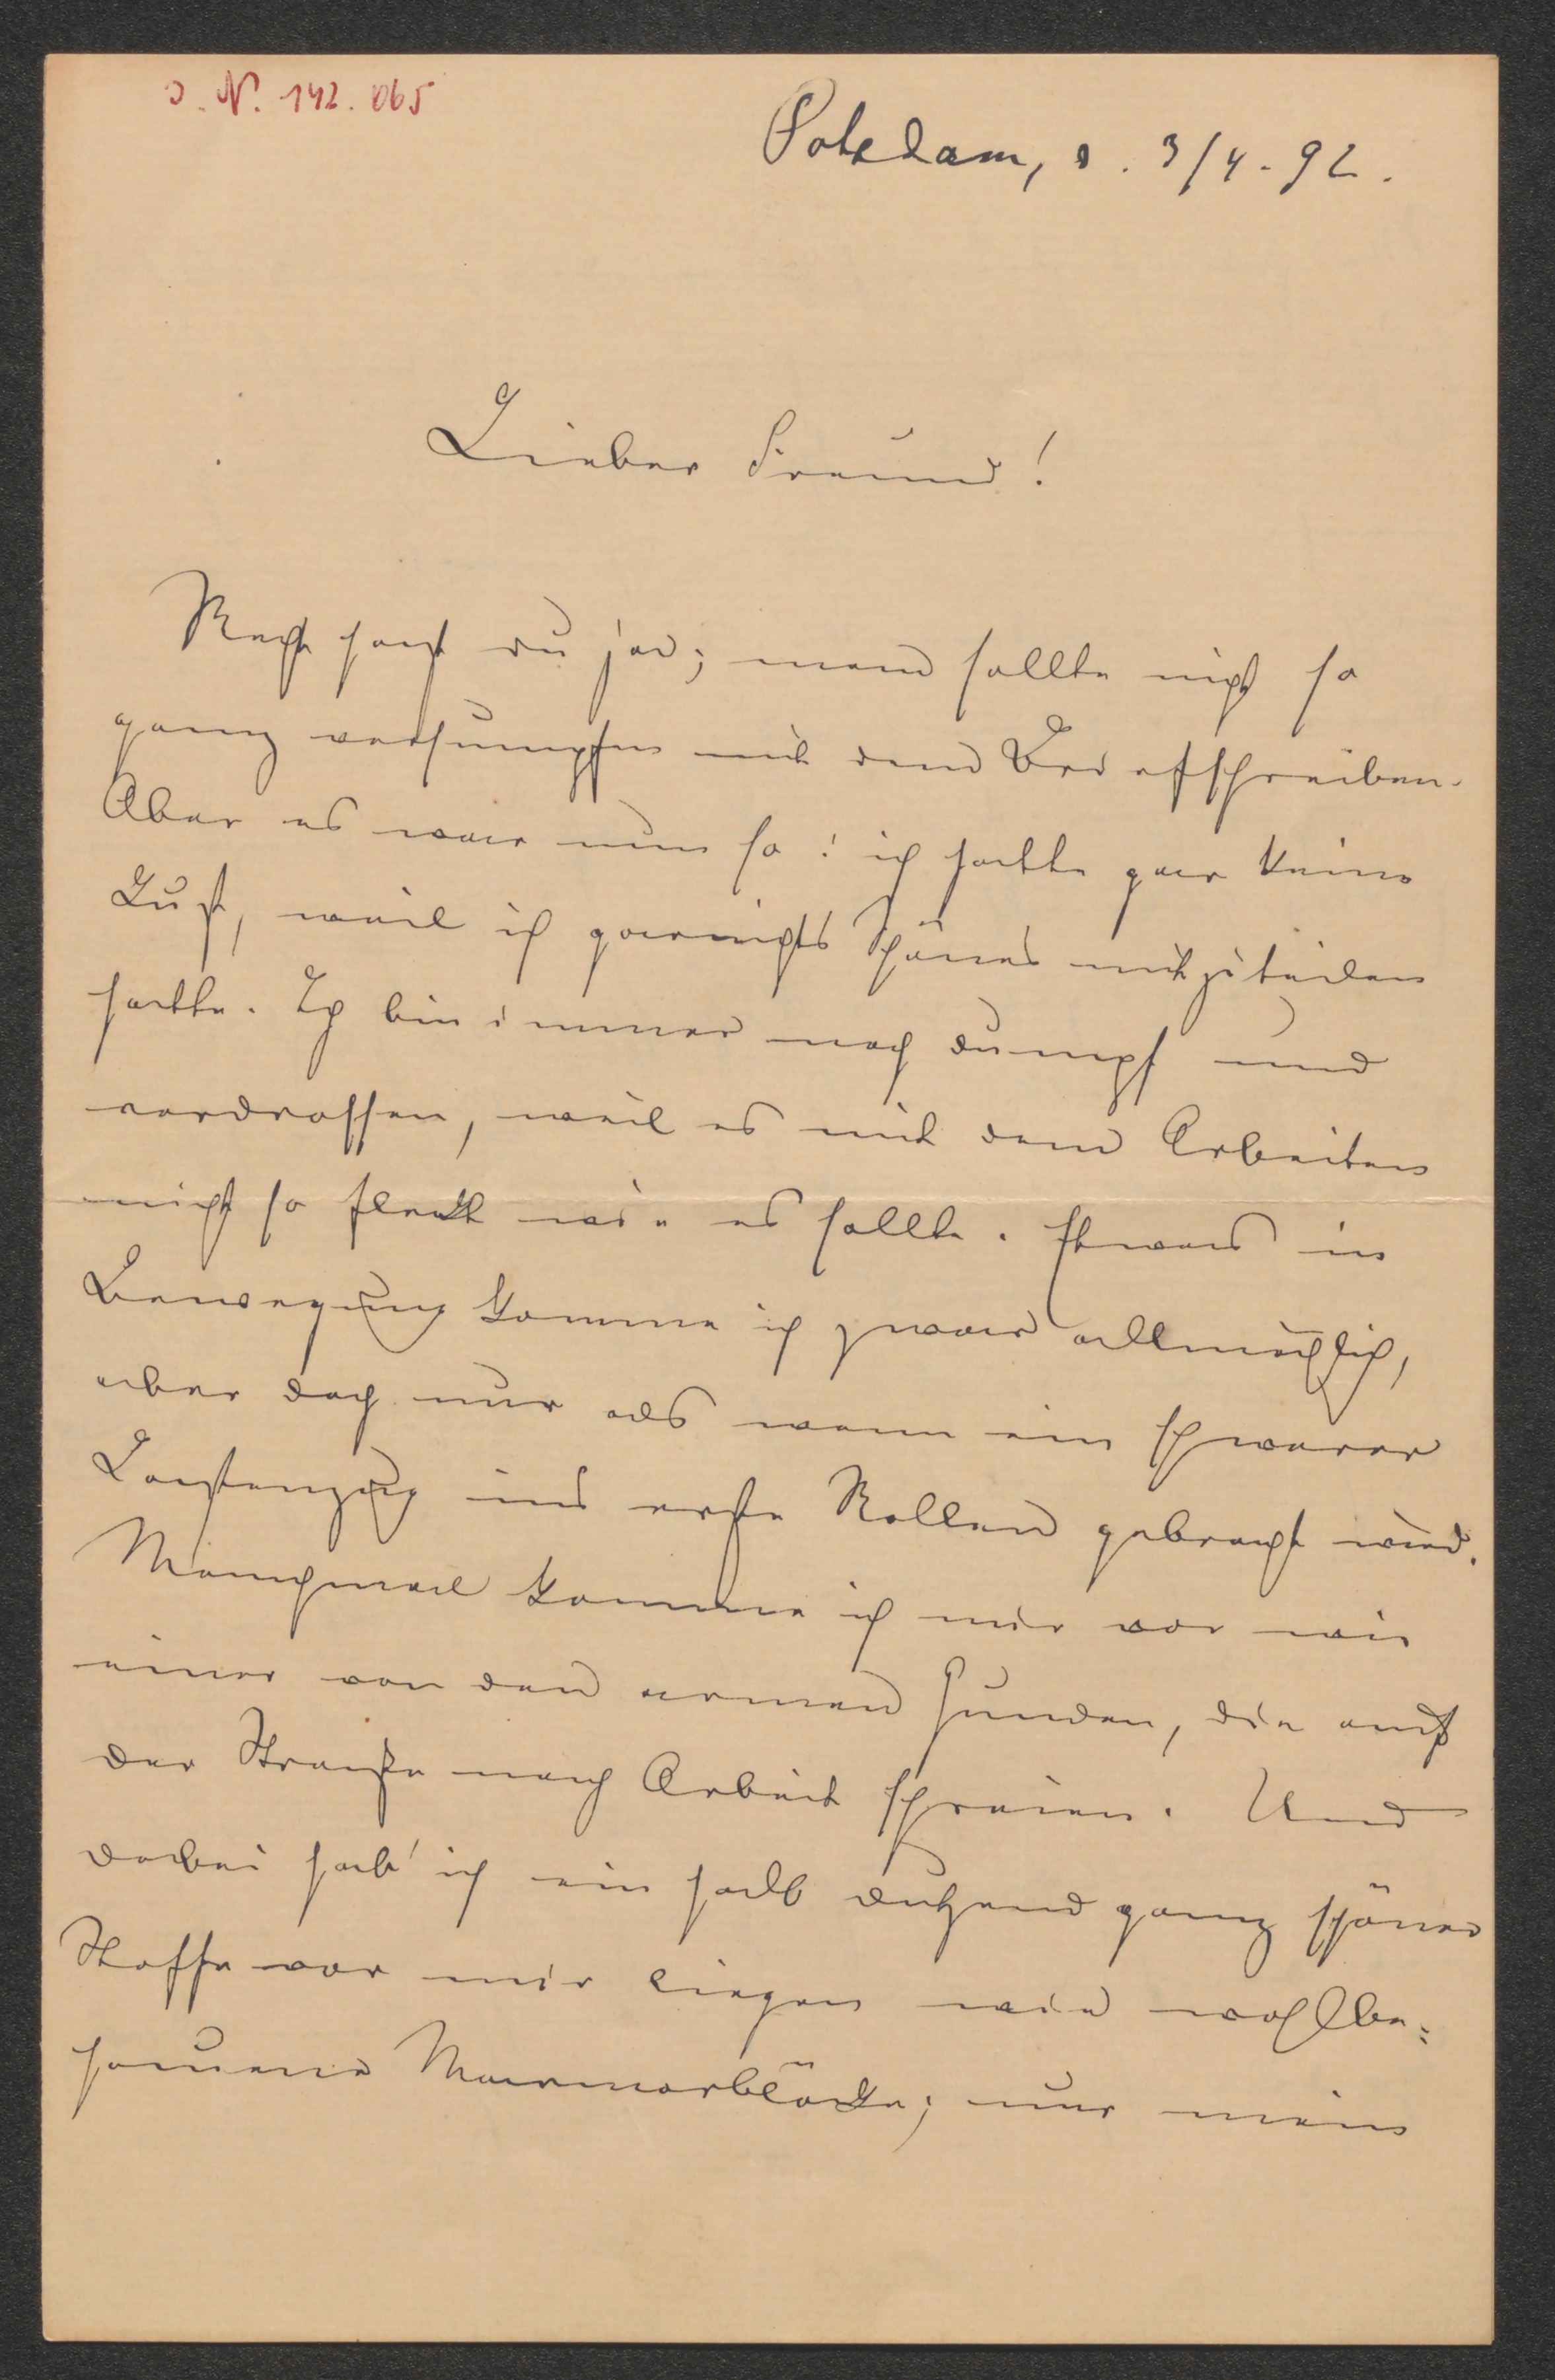 J. N. 142.065
Potsdam, d. 3/4. 92.
Lieber Freund!
Recht hast du ja; man sollte nicht so
ganz versumpfen mit dem Briefschreiben.
Aber es war nun so: ich hatte gar keine
Lust, weil ich garnichts Schönes mitzuteilen
hatte. Ich bin immer noch dumpf und
verdrossen, weil es mit dem Arbeiten
nicht so fleckt wie es sollte. Etwas in
Bewegung komme ich zwar allmählich,
aber doch nur als wenn ein schwerer
Lastenzug ins erste Rollen gebracht wird.
Manchmal komme ich mir vor wie
einer von den armen Hunden, die auf
der Straße nach Arbeit schreien. Und
dabei hab' ich ein halb dutzend ganz schöner
Stoffe vor mir liegen wie wohlbe=
hauene Marmorblöcke; nur mein